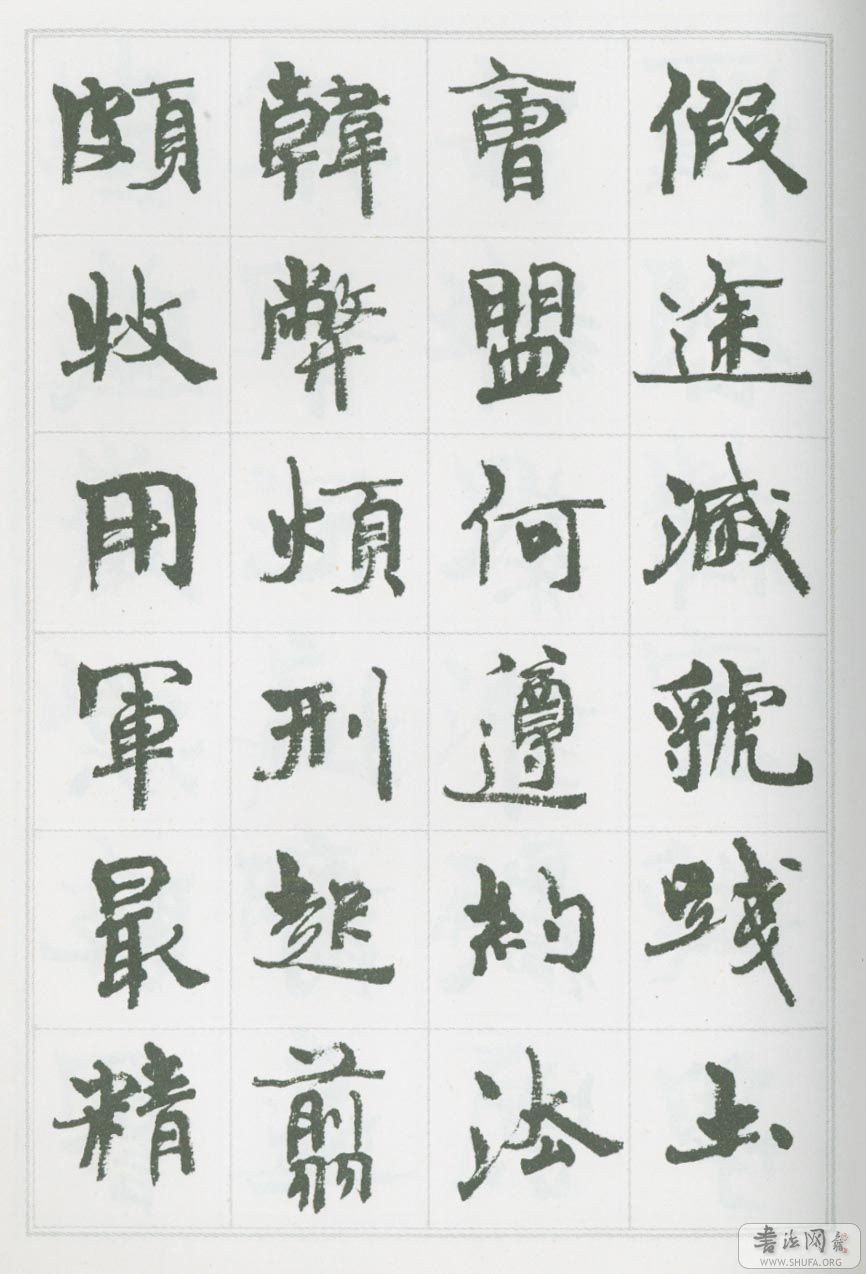 假途滅虢踐土
會盟何遵約法
韓弊煩刑起翦
頗收用軍最精
書法网
WWW.SHUFA.ORG